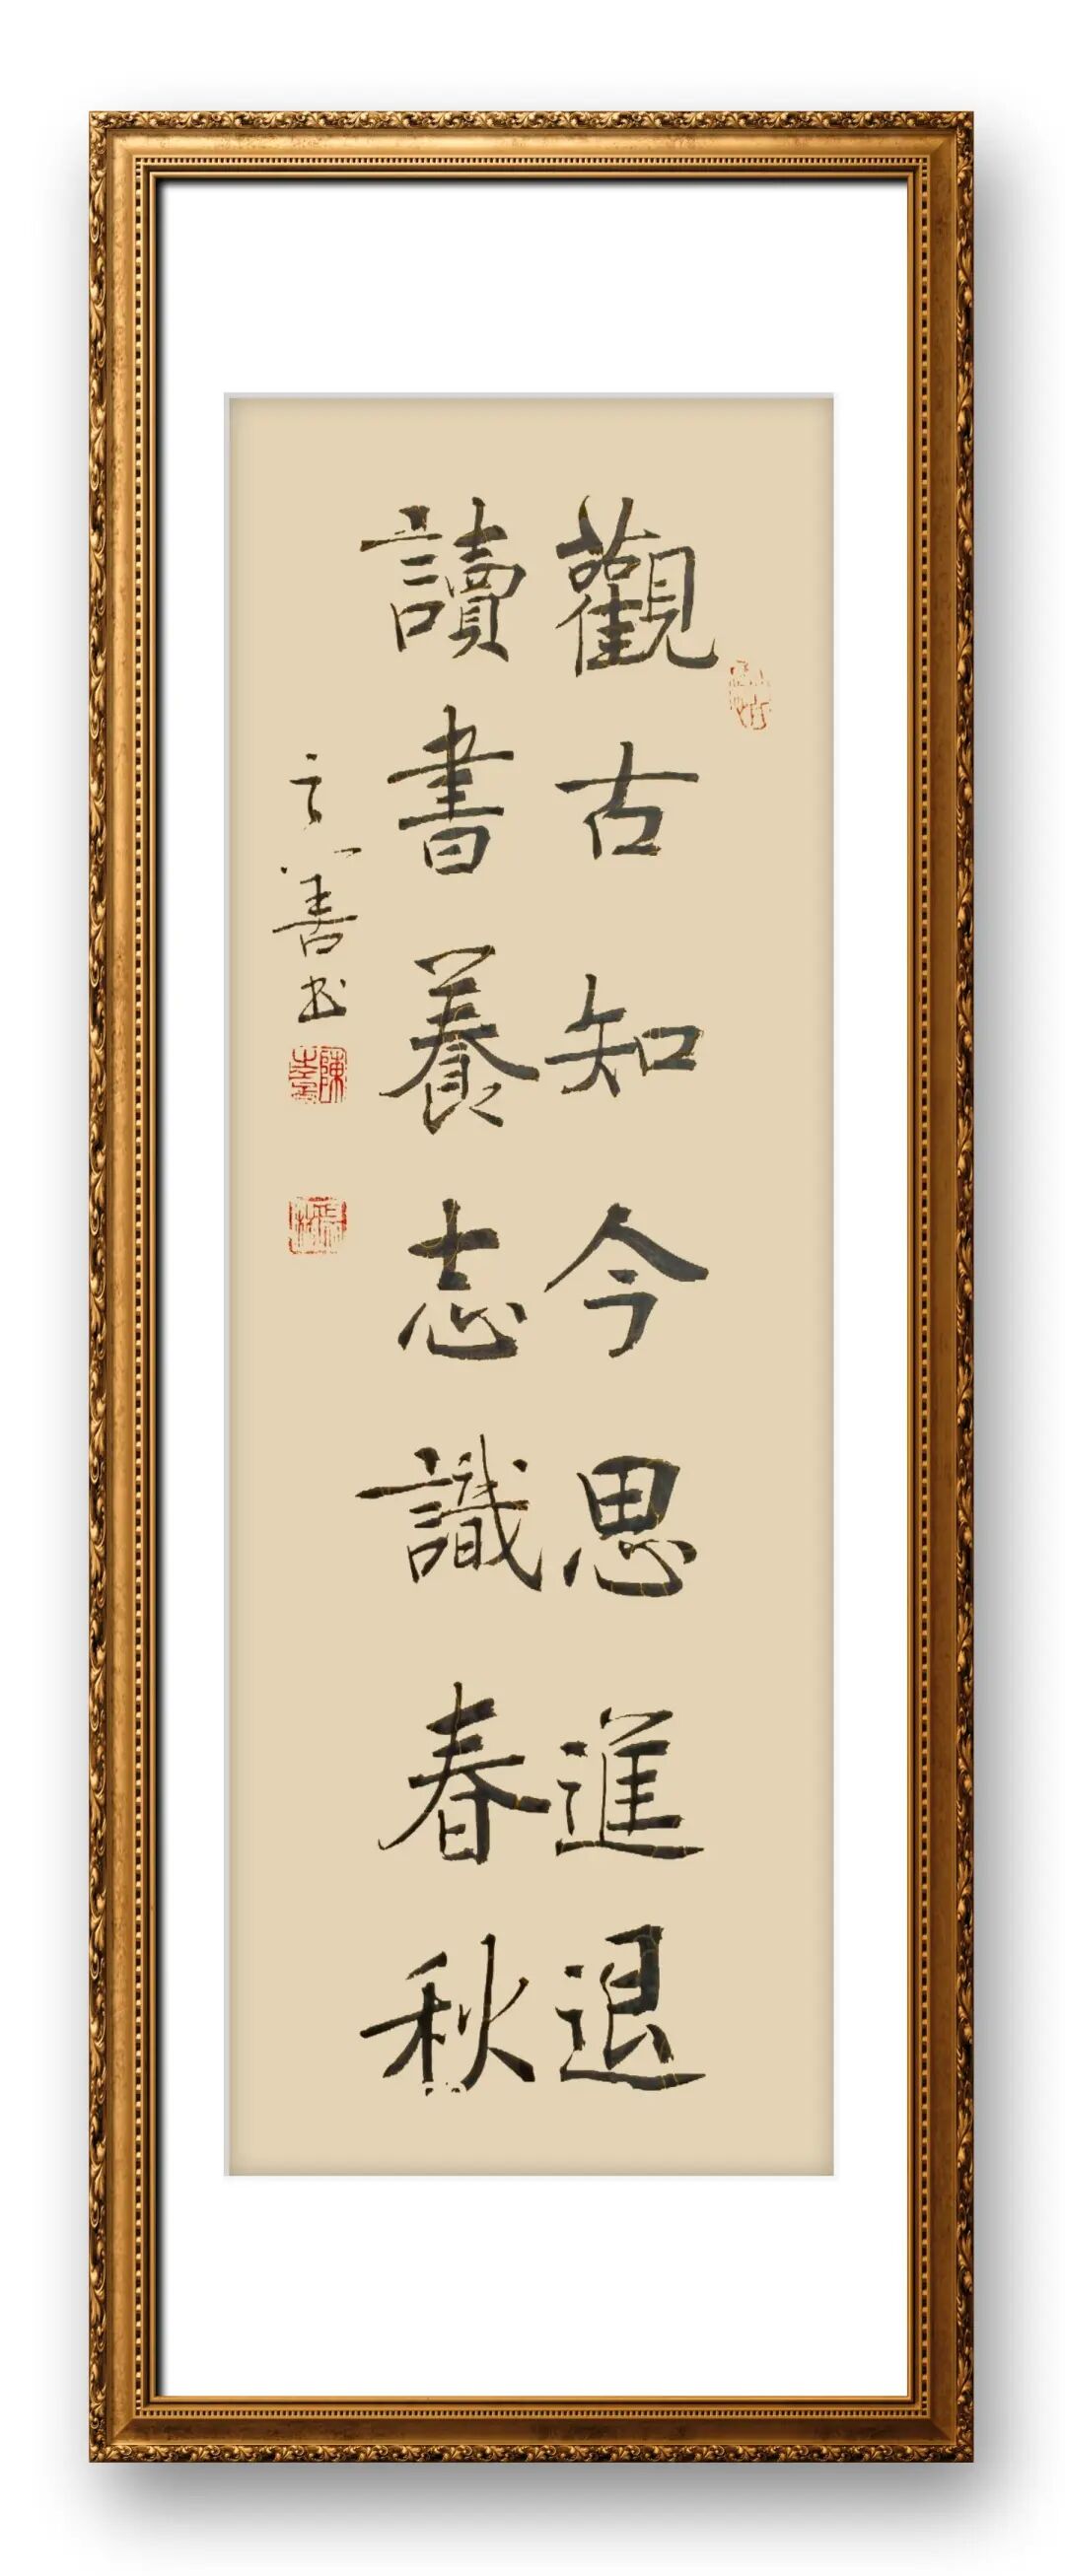 觀古知今思進退
讀書養志識春秋
善书